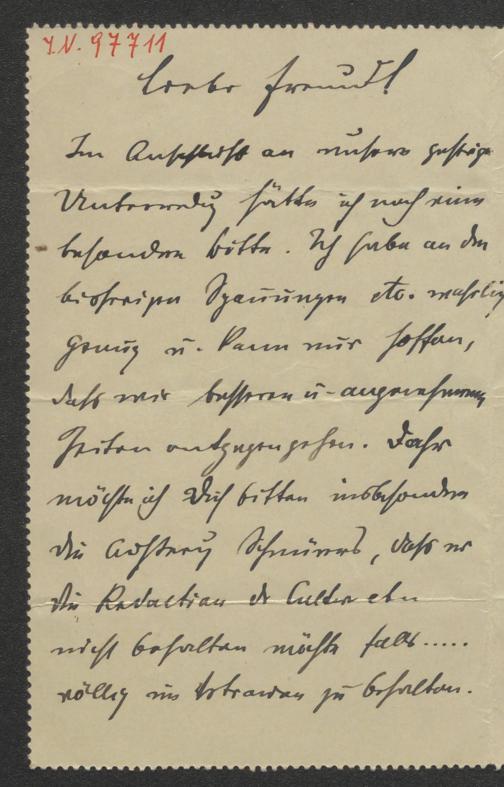 I.N. 97711
Liebe Freund!
Im Anschluß an unsere gestrige
Unterredg hätte ich noch eine
besondere Bitte. Ich habe an den
bisherigen Spannungen etc. wahrlich
genug u. kann nur hoffen,
daß wir besseren u. angenehmeren
Zeiten entgegengehen. Daher
möchte ich Dich bitten insbesondere
die Schnürers, daß er
die Redaction der Cultur eben
nicht behalten möchte falls.....
völlig im Vertrauen zu behalten.